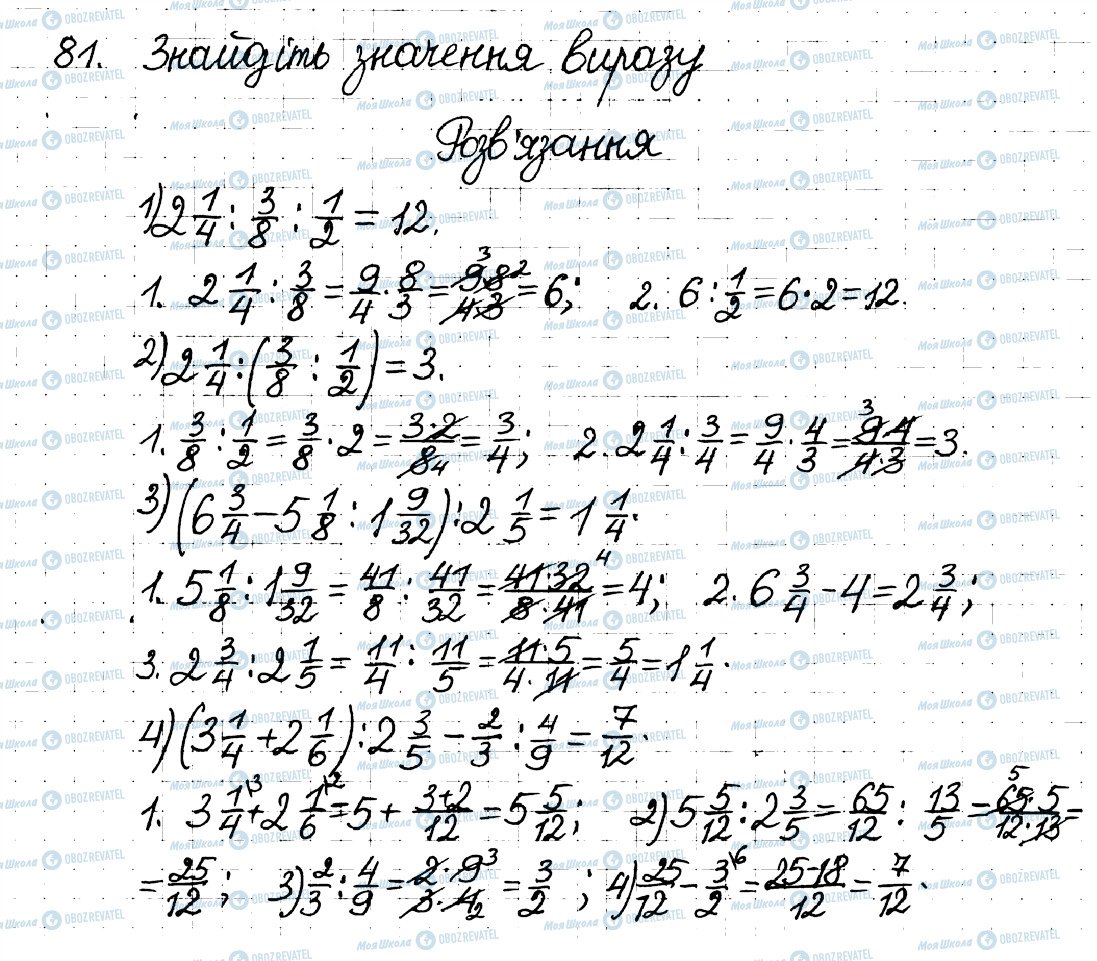 81. Знайдіть значення виразу
Розв'язання
1) 2 1/4 : 3/8 : 1/2 = 12.
1. 2 1/4 : 3/8 = 9/4 · 8/3 = 9·8/4·3 = 6; 2. 6 : 1/2 = 6·2 = 12.
2) 2 1/4 : (3/8 : 1/2) = 3.
1. 3/8 : 1/2 = 3/8 · 2 = 3·2/8 = 3/4; 2. 2 1/4 : 3/4 = 9/4 · 4/3 = 9·4/4·3 = 3.
3) (6 3/4 − 5 1/8 : 1 9/32) : 2 1/5 = 1 1/4.
1. 5 1/8 : 1 9/32 = 41/8 : 41/32 = 41·32/8·41 = 4; 2. 6 3/4 − 4 = 2 3/4;
3. 2 3/4 : 2 1/5 = 11/4 : 11/5 = 11·5/4·11 = 5/4 = 1 1/4.
4) (3 1/4 + 2 1/6) : 2 3/5 − 2/3 : 4/9 = 7/12.
1. 3 1/4 + 2 1/6 = 5 + 3+2/12 = 5 5/12; 2) 5 5/12 : 2 3/5 = 65/12 : 13/5 = 65·5/12·13 =
= 25/12; 3) 2/3 : 4/9 = 2·9/3·4 = 3/2; 4) 25/12 − 3/2 = 25−18/12 = 7/12.
МояШкола OBOZREVATEL